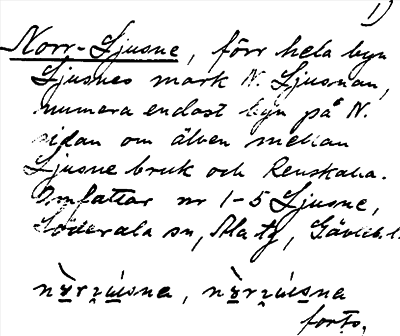 1)
Norr-Ljusne, förr hela byn
Ljusnes mark N. Ljusnan,
numera endast byn på N.
sidan om älven mellan
Ljusne bruk och Renskaha.
Omfattar nr 1-5 Ljusne,
Söderala sn, Ala tg, Gävleb. l.
forts.